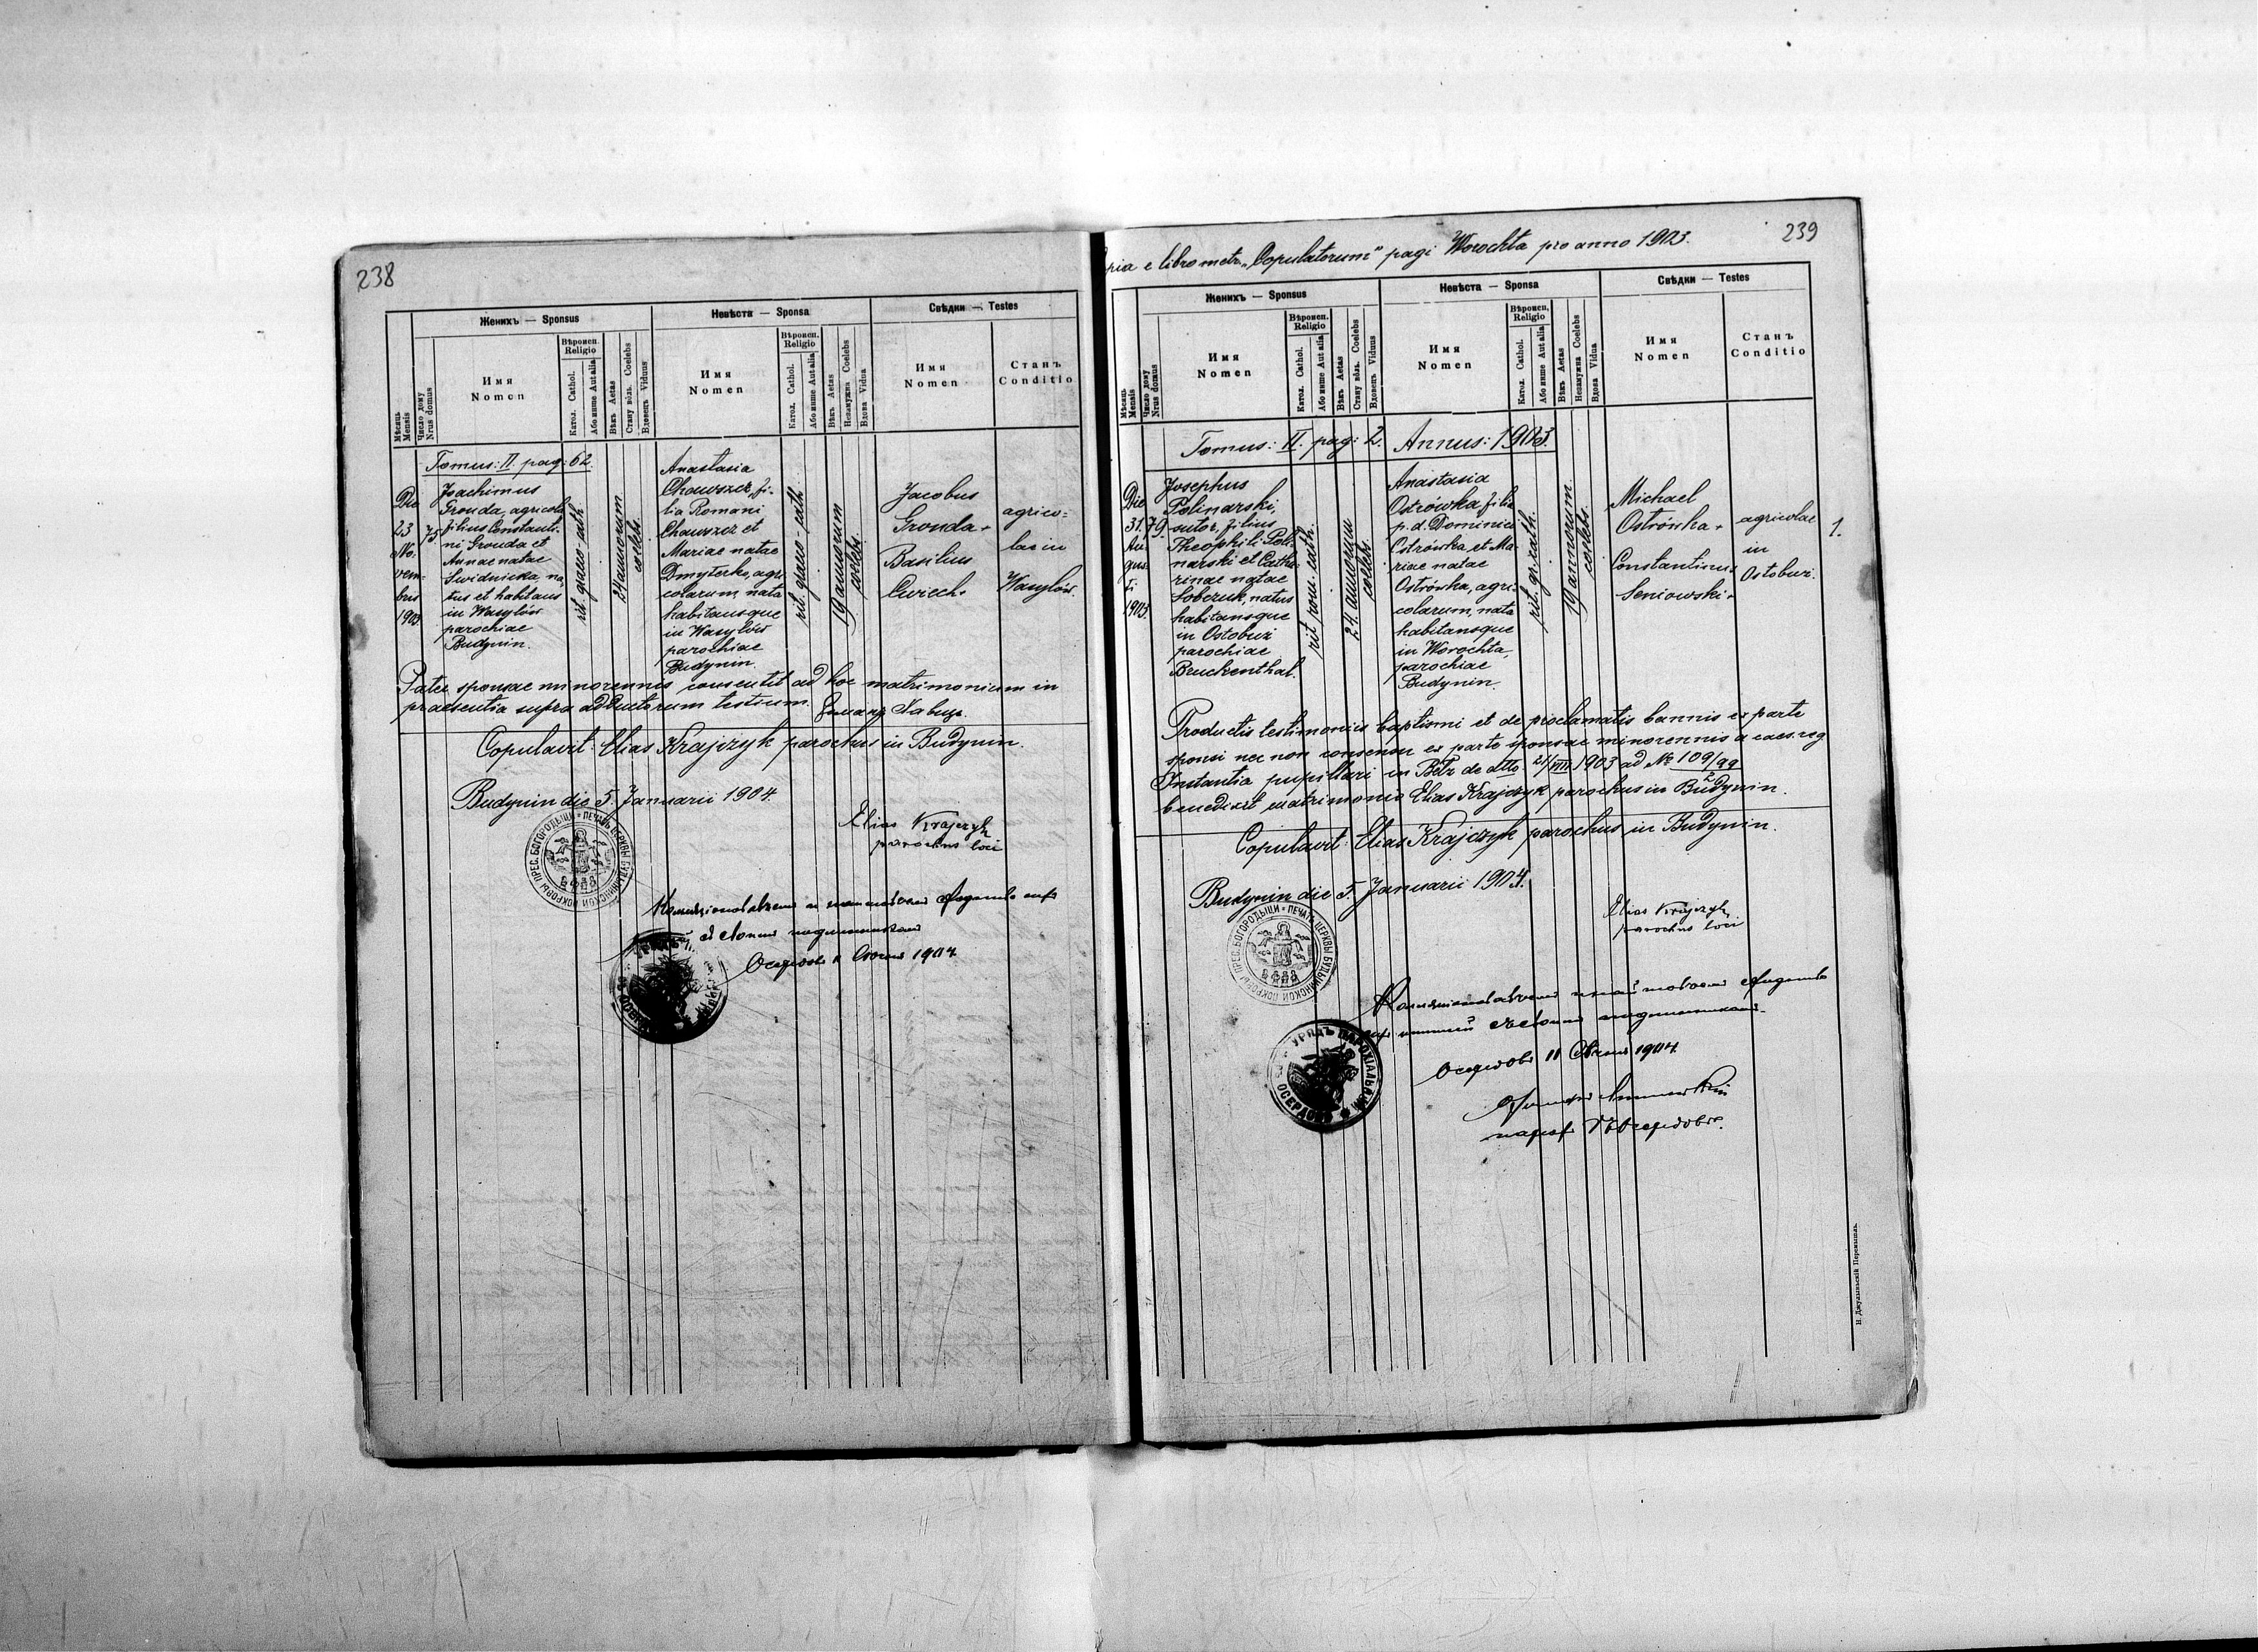 238
Женихъ — Sponsus
Невѣста — Sponsa
Свѣдки — Testes
Мѣсяць
Mensis
Число дому
Nrus domus
Имя
Nomen
Вѣроисп.
Religio
Катол. Cathol.
Або инше Aut alia
Вѣкъ Aetas
Стану вôльн. Coelebs
Вдовець Viduus
Имя
Nomen
Вѣроисп.
Religio
Катол. Cathol.
Або инше Aut alia
Вѣкъ Aetas
Незамужна Coelebs
Вдова Vidua
Имя
Nomen
Станъ
Conditio
Tomus: II. pag: 62.
Die
23
No-
vem-
bris
1903.
75
Joachimus
Gronda, agricola
filius Constanti-
ni Gronda et
Annae natae
Swidnicka, na-
tus et habitans
in Wasylów
parochiae
Budynin.
rit. graeco-cath.
24 annorum
coelebs
Anastasia
Chawszcz, fi-
lia Romani
Chawszcz et
Mariae natae
Dmyterko, agri-
colarum, nata
habitansque
in Wasylów
parochiae
Budynin.
rit. graeco-cath.
19 annorum
coelebs.
Jacobus
Gronda +
Basilius
Cwiech +
agrico-
lae in
Wasylów.
Pater sponsae minorennis consentit ad hoc matrimonium in
praesentia supra adductorum testium.
Copulavit: Elias Krajczyk parochus in Budynin.
Budynin die 5. Januarii 1904.
Elias Krajczyk
parochus loci
ПЕЧАТЬ ЦЕРКВЫ БУДЫНИНСКОЙ ПОКРОВЫ ПРЕС. БОГОРОДЫЦИ
1904
239
e libro metr. „Copulatorum" pagi Worochta pro anno 1903.
Женихъ — Sponsus
Невѣста — Sponsa
Свѣдки — Testes
Мѣсяць
Mensis
Число дому
Nrus domus
Имя
Nomen
Вѣроисп.
Religio
Катол. Cathol.
Або инше Aut alia
Вѣкъ Aetas
Стану вôльн. Coelebs
Вдовець Viduus
Имя
Nomen
Вѣроисп.
Religio
Катол. Cathol.
Або инше Aut alia
Вѣкъ Aetas
Незамужна Coelebs
Вдова Vidua
Имя
Nomen
Станъ
Conditio
Tomus: II. pag: 2. Annus: 1903.
Die
31.
Au-
gus-
ti
1903.
79.
Josephus
Polinarski,
sutor, filius
Theophili Poli-
narski et Catha-
rinae natae
Soberuk, natus
habitansque
in Ostobuż
parochiae
Bruckenthal.
rit. rom. cath.
24. annorum
coelebs.
Anastasia
Ostrówka, filia
p. d. Dominici
Ostrówka et Ma-
riae natae
Ostrówka, agri-
colarum, nata
habitansque
in Worochta,
parochiae
Budynin.
rit. gr. cath.
19 annorum
coelebs.
Michael
Ostrówka +
Constantinus
Seniowski +
agricolae
in
Ostobuż.
1.
Productis testimoniis baptismi et de proclamatis bannis ex parte
sponsi nec non consensu ex parte sponsae minorennis a caes. reg.
Instantia pupillari in Bełz de dtto. 21/VIII 1903 ad № 109/99
2
benedixit matrimonio Elias Krajczyk parochus in Budynin.
Copulavit: Elias Krajczyk parochus in Budynin.
Budynin die 5. Januarii 1904.
Elias Krajczyk
parochus loci
ПЕЧАТЬ ЦЕРКВЫ БУДЫНИНСКОЙ ПОКРОВЫ ПРЕС. БОГОРОДЫЦИ
УРЯДЪ ПАРОХІАЛЬНЫЙ
11 1904.